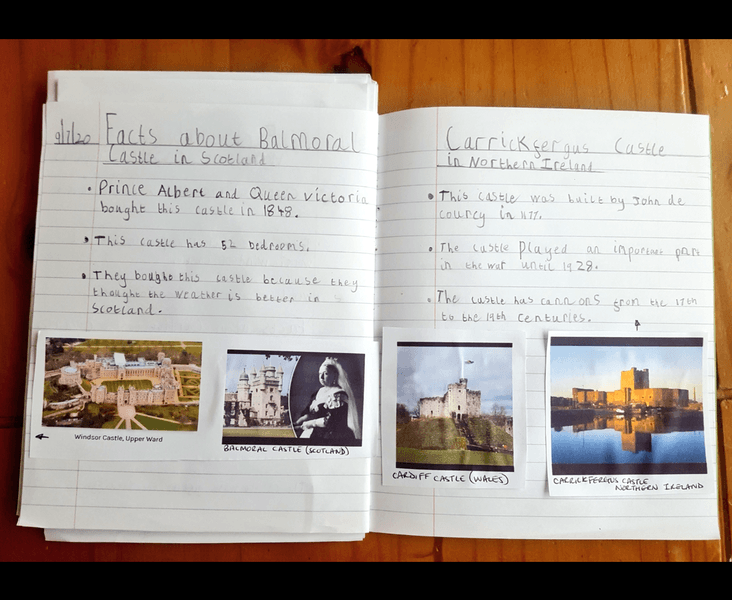 9/7/20
Facts about Balmoral
Castle in Scotland
• Prince Albert and Queen Victoria
bought this castle in 1848.
• This castle has 52 bedrooms.
• They bought this castle because they
thought the weather is better in
Scotland.
Windsor Castle, Upper Ward
BALMORAL CASTLE (SCOTLAND)
Carrickfergus Castle
in Northern Ireland
• This castle was built by John de
courcy in 1177.
• The castle played an important part
in the war until 1928.
• The castle has cannons from the 17th
to the 19th centuries.
CARDIFF CASTLE (WALES)
CARRICKFERGUS CASTLE
NORTHERN IRELAND